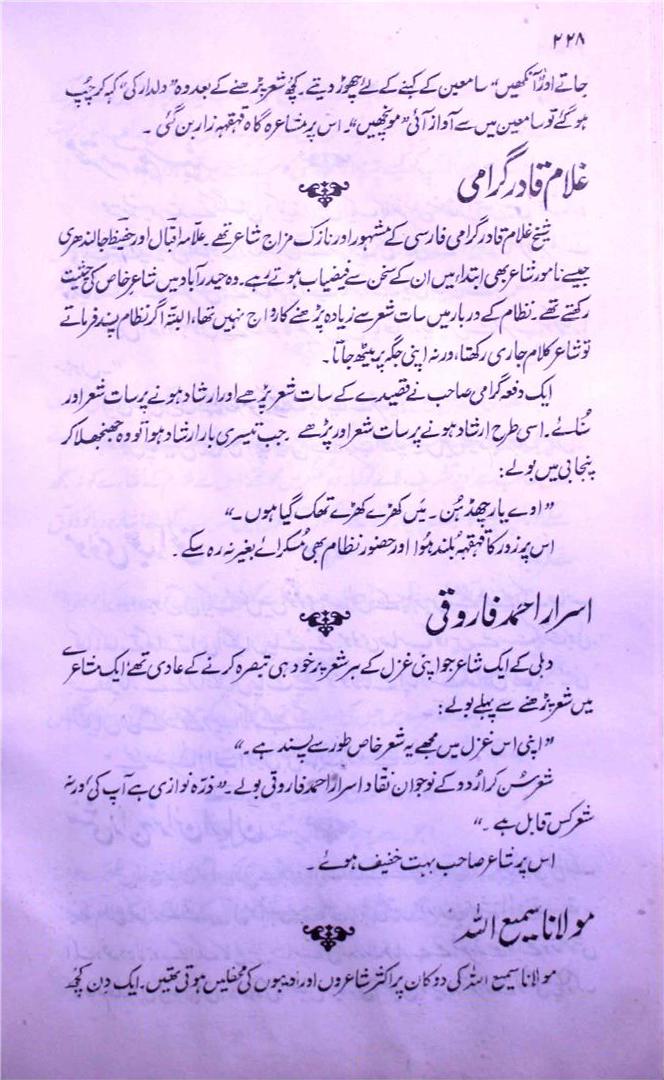 ۲۲۸
جاتے اور ”آنکھیں“ سامعین کے کہنے کے لئے چھوڑ دیتے۔ کچھ شعر پڑھنے کے بعد وہ ”دلدار کی“ کہہ کر چُپ
ہو گئے تو سامعین میں سے آواز آئی ”مونچھیں“۔ اس پر مشاعرہ گاہ قہقہہ زار بن گئی۔
غلام قادر گرامی
شیخ غلام قادر گرامی فارسی کے مشہور اور نازک مزاج شاعر تھے۔ علامہ اقبال اور حفیظ جالندھری
جیسے نامور شاعر بھی ابتدا میں ان کے سخن سے فیضیاب ہوتے رہے۔ وہ حیدرآباد میں شاعرِ خاص کی حیثیت
رکھتے تھے۔ نظام کے دربار میں سات شعر سے زیادہ پڑھنے کا رواج نہیں تھا، البتہ اگر نظام پسند فرماتے
تو شاعر کلام جاری رکھتا، ورنہ اپنی جگہ پر بیٹھ جاتا۔
ایک دفعہ گرامی صاحب نے قصیدے کے سات شعر پڑھے اور ارشاد ہونے پر سات شعر اور
سُنائے۔ اسی طرح ارشاد ہونے پر سات شعر اور پڑھے۔ جب تیسری بار ارشاد ہوا تو وہ جھنجھلا کر
پنجابی میں بولے:
”اوے یار چھڈ ہُن۔ میں کھڑے کھڑے تھک گیا ہوں۔“
اس پر زور کا قہقہہ بلند ہُوا اور حضور نظام بھی مُسکرائے بغیر نہ رہ سکے۔
اسرار احمد فاروقی
دہلی کے ایک شاعر جو اپنی غزل کے ہر شعر پر خود ہی تبصرہ کرنے کے عادی تھے ایک مشاعرے
میں شعر پڑھنے سے پہلے بولے:
”اپنی اس غزل میں مجھے یہ شعر خاص طور سے پسند ہے۔“
شعر سُن کر اُردو کے نوجوان نقاد اسرار احمد فاروقی بولے۔ ”ذرّہ نوازی ہے آپ کی، ورنہ
شعر کس قابل ہے۔“
اس پر شاعر صاحب بہت خفیف ہوئے۔
مولانا سمیع اللہ
مولانا سمیع اللہ کی دوکان پر اکثر شاعروں اور ادیبوں کی محفلیں ہوتی تھیں۔ ایک دِن کچھ